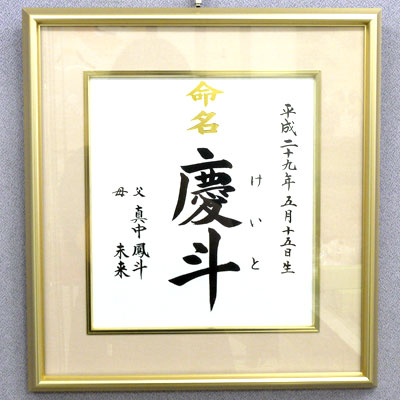 命名
平成二十九年 五月十五日生
けいと
慶斗
父 真中 鳳斗
母 未来